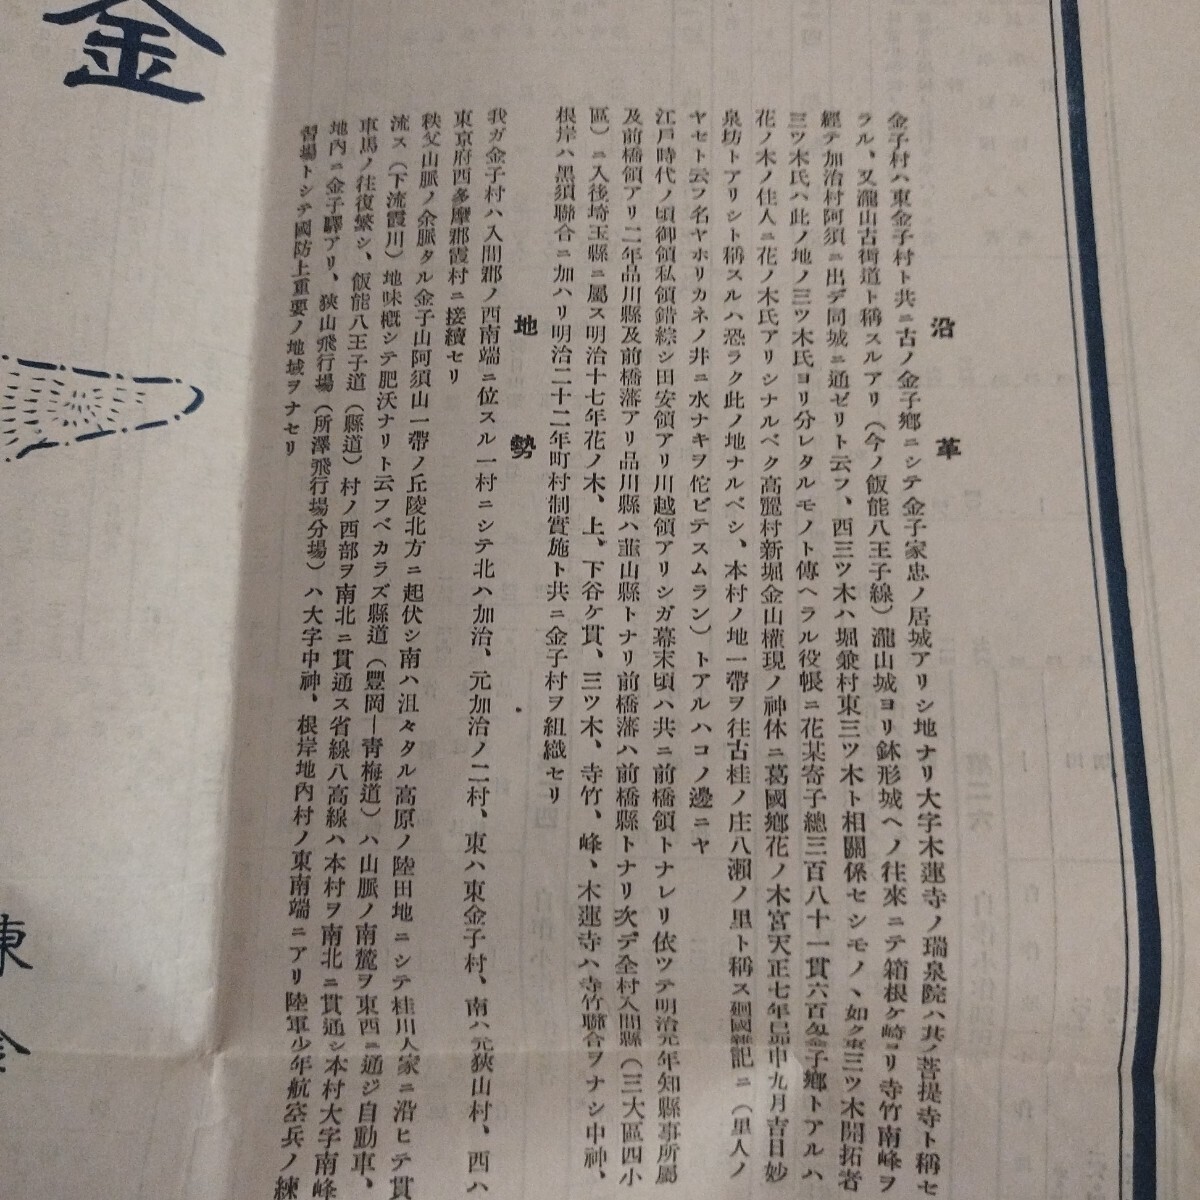 沿革
金子村ハ東金子村ト共ニ古ノ金子鄕ニシテ金子家忠ノ居城アリシ地ナリ大字木蓮寺ノ瑞泉院ハ其ノ菩提寺ト稱セ
ラル、又瀧山古街道ト稱スルアリ(今ノ飯能八王子線)瀧山城ヨリ鉢形城ヘノ往來ニテ箱根ケ崎ヨリ寺竹南峰ヲ
經テ加治村阿須ニ出デ同城ニ通ゼリト云フ、西三ツ木ハ堀兼村東三ツ木ト相關係セシモノヽ如ク東三ツ木開拓者
三ツ木氏ハ此ノ地ノ三ツ木氏ヨリ分レタルモノト傳ヘラル役帳ニ花某寄子總三百八十一貫六百匁金子鄕トアルハ
花ノ木ノ住人ニ花ノ木氏アリシナルベク高麗村新堀金山權現ノ神休ニ葛國鄕花ノ木宮天正七年巳卯申九月吉日妙
泉坊トアリシト稱スルハ恐ラク此ノ地ナルベシ、本村ノ地一帶ヲ往古桂ノ庄八瀨ノ里ト稱ス廻國雜記ニ(里人ノ
ヤセト云フ名ヤホリカネノ井ニ水ナキヲ佗ビテスムラン)トアルハコノ邊ニヤ
江戶時代ノ頃御領私領錯綜シ田安領アリ川越領アリシガ幕末頃ハ共ニ前橋領トナレリ依ツテ明治元年知縣事所屬
及前橋領アリ二年品川縣及前橋藩アリ品川縣ハ韮山縣トナリ前橋藩ハ前橋縣トナリ次デ全村入間縣(三大區四小
區)ニ入後埼玉縣ニ屬ス明治十七年花ノ木、上、下谷ケ貫、三ツ木、寺竹、峰、木蓮寺ハ寺竹聯合ヲナシ中神、
根岸ハ黑須聯合ニ加ハリ明治二十二年町村制實施ト共ニ金子村ヲ組織セリ
地勢
我ガ金子村ハ入間郡ノ西南端ニ位スル一村ニシテ北ハ加治、元加治ノ二村、東ハ東金子村、南ハ元狹山村、西ハ
東京府西多摩郡霞村ニ接續セリ
秩父山脈ノ余脈タル金子山阿須山一帶ノ丘陵北方ニ起伏シ南ハ沮々タル高原ノ陸田地ニシテ桂川人家ニ沿ヒテ貫
流ス(下流霞川)地味槪シテ肥沃ナリト云フベカラズ縣道(豐岡—靑梅道)ハ山脈ノ南麓ヲ東西ニ通ジ自動車、
車馬ノ往復繁シ、飯能八王子道(縣道)村ノ西部ヲ南北ニ貫通ス省線八高線ハ本村ヲ南北ニ貫通シ本村大字南峰
地內ニ金子驛アリ、狹山飛行場(所澤飛行場分場)ハ大字中神、根岸地內村ノ東南端ニアリ陸軍少年航空兵ノ練
習場トシテ國防上重要ノ地域ヲナセリ
金
東金